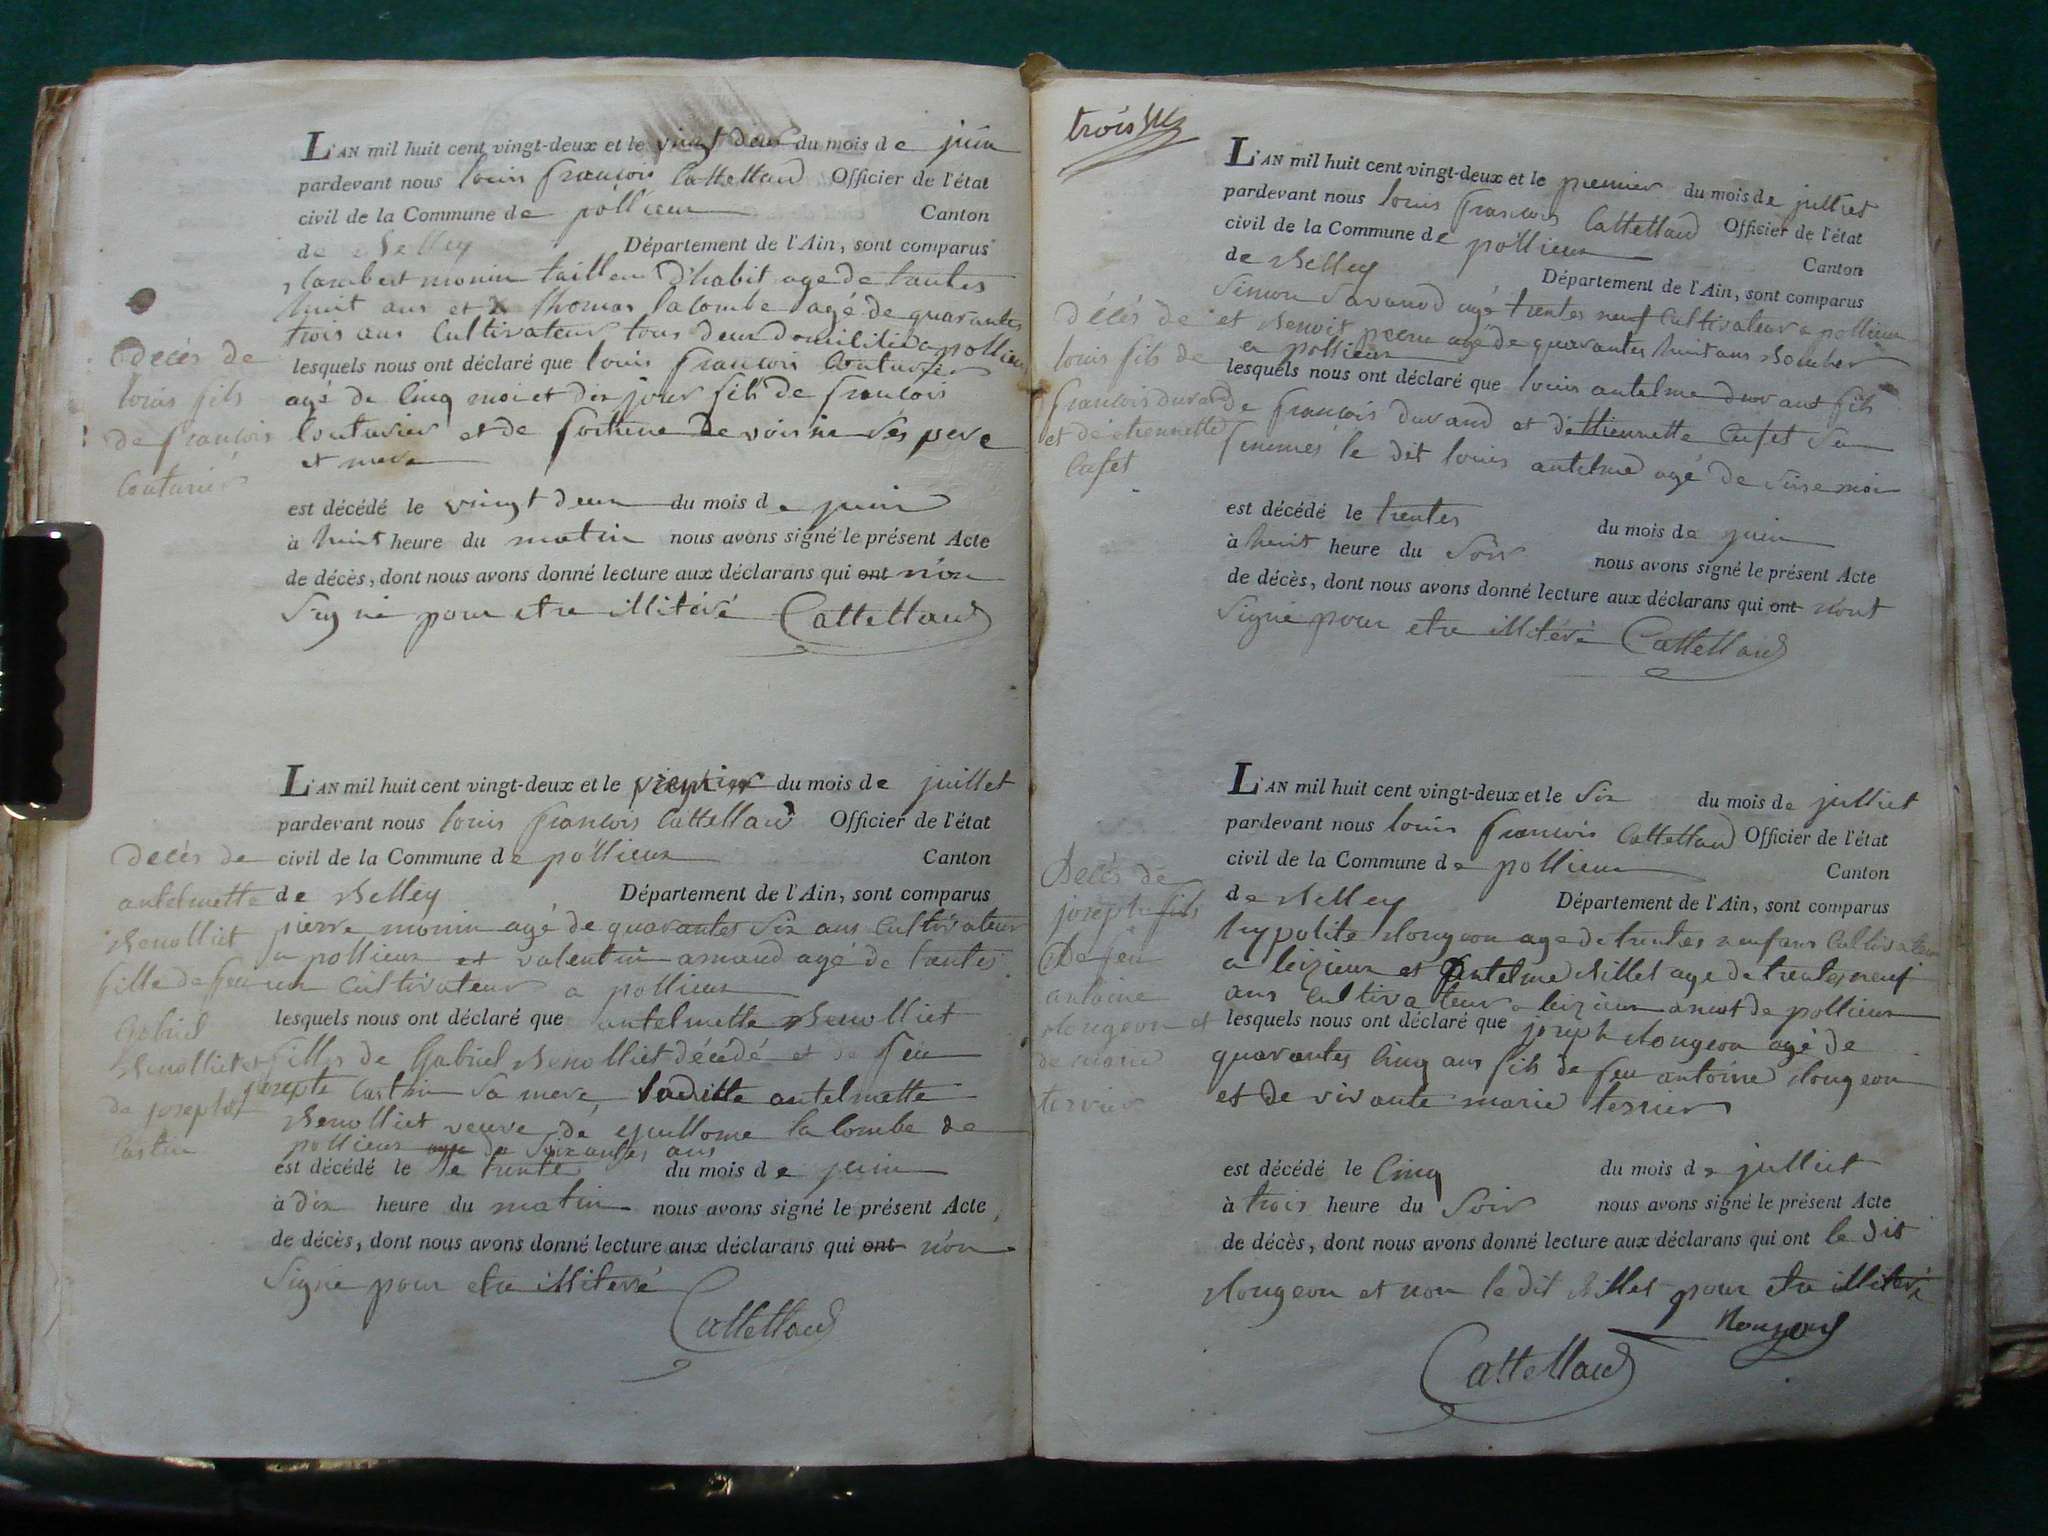 L'AN mil huit cent vingt-deux et le vingt deux du mois de juin
pardevant nous louis françois Cattelland Officier de l'état
civil de la Commune de pollieux Canton
de Belley Département de l'Ain, sont comparus
monin tailleur d'habit age de trantes
huit ans et thomas lacombe agé de quarantes
trois ans Cultivateur tous deux domicilié a pollieu
lesquels nous ont déclaré que louis françois Couturier
agé de Cinq moi et dix jour fils de françois
Couturier et de de voisine ses pere
et mere
est décédé le vingt deux du mois de juin
à huit heure du matin nous avons signé le présent Acte
de décès, dont nous avons donné lecture aux déclarans qui ont non
Signé pour etre illitéré Cattelland
decés de
louis fils
de françois
Couturier
L'AN mil huit cent vingt-deux et le premier du mois de juillet
pardevant nous louis françois Cattelland Officier de l'état
civil de la Commune de pollieux Canton
de Belley Département de l'Ain, sont comparus
pierre monin agé de quarantes six ans Cultivateur
a pollieux et valentin arnaud agé de trantes
un Cultivateur a pollieux
lesquels nous ont déclaré que antelmette Benolliet
fille de Gabriel Benolliet décédé et de feu
josepte Castin sa mere laditte antelmette
Benolliet veuve de guillome la Combe de
pollieux age de soixantes ans
est décédé le le trente du mois de juin
à dix heure du matin nous avons signé le présent Acte
de décès, dont nous avons donné lecture aux déclarans qui ont non
Signé pour etre illiteré
Cattelland
decés de
antelmette
Benolliet
fille de feu
Gabriel
Benolliet et
de josepte
Castin
trois
L'AN mil huit cent vingt-deux et le premier du mois de julliet
pardevant nous louis françois Cattelland Officier de l'état
civil de la Commune de pollieux Canton
de Belley Département de l'Ain, sont comparus
Simon Savanod agé trentes neuf Cultivateur a pollieux
et Benoit agé de quarantes huit ans
a pollieux
lesquels nous ont déclaré que louis antelme durand fils
de françois durand et d'ettiennette Cufet Sa
femme le dit louis antelme agé de moi
est décédé le trentes du mois de juin
à huit heure du Soir nous avons signé le présent Acte
de décès, dont nous avons donné lecture aux déclarans qui ont n'ont
Signé pour etre illitéré Cattelland
décés de
louis fils de
françois durand
et de etiennette
Cufet
L'AN mil huit cent vingt-deux et le Six du mois de julliet
pardevant nous louis françois Cattelland Officier de l'état
civil de la Commune de pollieux Canton
de Belley Département de l'Ain, sont comparus
hypolite Mongeon age de trentes neuf ans Cultivateur
a leizieux et antelme Billet age de trentes neuf
ans Cultivateur a leizieux de pollieux
lesquels nous ont déclaré que joseph Mongeon agé de
quarantes Cinq ans fils de feu antoine Mongeon
et de vivante marie tervier
est décédé le Cinq du mois de julliet
à trois heure du Soir nous avons signé le présent Acte
de décès, dont nous avons donné lecture aux déclarans qui ont le dit
Mongeon et non le dit Billet pour etre illiteré
Cattelland
Decés de
joseph fils
De feu
antoine
Mongeon et
de marie
tervier